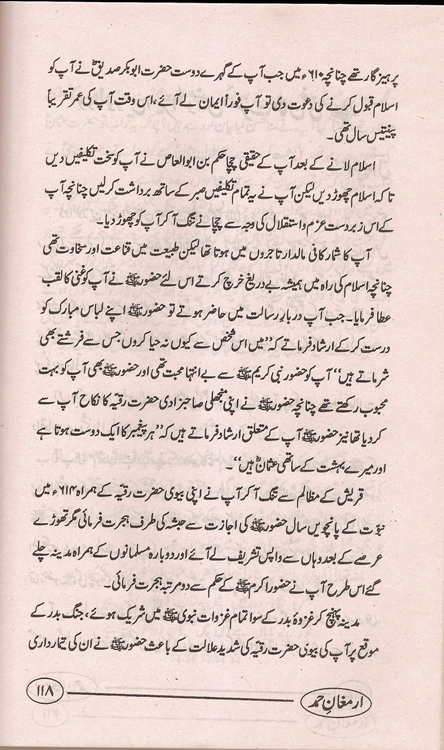 پرہیزگار تھے چنانچہ ۶۱۰ء میں جب آپ کے گہرے دوست حضرت ابوبکر صدیقؓ نے آپ کو
اسلام قبول کرنے کی دعوت دی تو آپ فوراً ایمان لے آئے، اس وقت آپ کی عمر تقریباً
پینتیس سال تھی۔
اسلام لانے کے بعد آپ کے حقیقی چچا حکم بن ابوالعاص نے آپ کو سخت تکلیفیں دیں
تاکہ اسلام چھوڑ دیں لیکن آپ نے یہ تمام تکلیفیں صبر کے ساتھ برداشت کر لیں چنانچہ آپ
کے اس زبردست عزم و استقلال کی وجہ سے چچا نے تنگ آ کر آپ کو چھوڑ دیا۔
آپ کا شمار کافی مالدار تاجروں میں ہوتا تھا لیکن طبیعت میں قناعت اور سخاوت تھی
چنانچہ اسلام کی راہ میں ہمیشہ بے دریغ خرچ کرتے اس لئے حضور ﷺ نے آپ کو غنی کا لقب
عطا فرمایا۔ جب آپ دربارِ رسالت میں حاضر ہوتے تو حضور ﷺ اپنے لباس مبارک کو
درست کر کے ارشاد فرماتے کہ ”میں اس شخص سے کیوں نہ حیا کروں جس سے فرشتے بھی
شرماتے ہیں“ آپ کو حضور نبی کریم ﷺ سے بے انتہا محبت تھی اور حضور ﷺ بھی آپ کو بہت
محبوب رکھتے تھے چنانچہ حضور ﷺ نے اپنی منجھلی صاحبزادی حضرت رقیہؓ کا نکاح آپ سے
کر دیا تھا نیز حضور ﷺ آپ کے متعلق ارشاد فرماتے ہیں کہ ”ہر پیغمبر کا ایک دوست ہوتا ہے
اور میرے بہشت کے ساتھی عثمانؓ ہیں“۔
قریش کے مظالم سے تنگ آ کر آپ نے اپنی بیوی حضرت رقیہؓ کے ہمراہ ۶۱۴ء میں
نبوّت کے پانچویں سال حضور ﷺ کی اجازت سے حبشہ کی طرف ہجرت فرمائی مگر تھوڑے
عرصے کے بعد وہاں سے واپس تشریف لے آئے اور دوبارہ مسلمانوں کے ہمراہ مدینہ چلے
گئے اس طرح آپ نے حضور اکرم ﷺ کے حکم سے دو مرتبہ ہجرت فرمائی۔
مدینہ پہنچ کر غزوۂ بدر کے سوا تمام غزوات نبوی ﷺ میں شریک ہوئے، جنگ بدر کے
موقع پر آپ کی بیوی حضرت رقیہؓ کی شدید علالت کے باعث حضور ﷺ نے ان کی تیمارداری
ارمغانِ حمد
۱۱۸